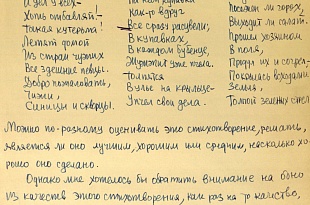 А дел у всех –
Хоть отбавляй! –
Такая кутерьма!
Летят домой
Из стран чужих
Все здешние певцы.
Добро пожаловать,
Чижи,
Синицы и скворцы.
Как-то вдруг
Все сразу расцвели,
В купавках,
В каждом бубенце,
Журчит уже пчела.
Толпятся
В улье на крыльце –
У пчел свои дела.
Посеял ли горох,
Выходит ли салат.
Прошел хозяином
В поля,
Пруды их и согрел –
Покрылась всходами
Земля,
Толпой зеленых стрел
Можно по-разному оценивать это стихотворение, решать,
является ли оно лучшим, хорошим или средним, насколько хо-
рошо оно сделано.
Однако мне хотелось бы обратить внимание на одно
из качеств этого стихотворения, как раз на то качество,